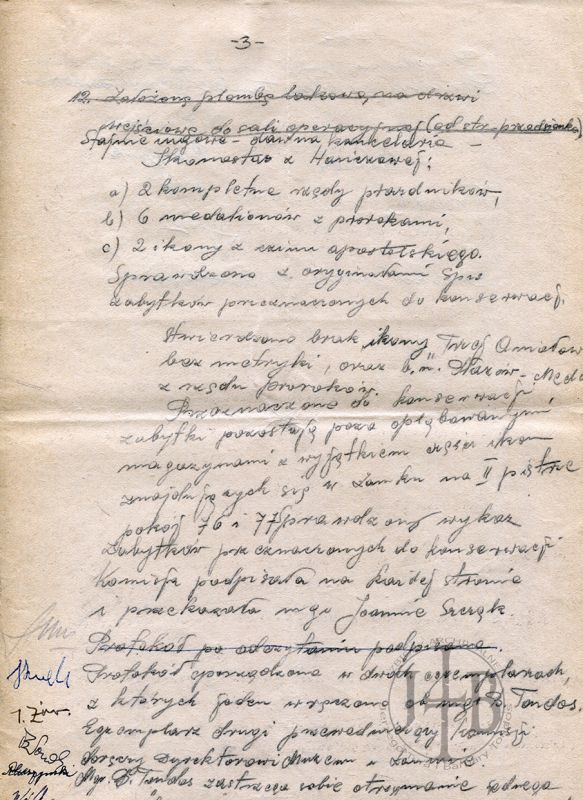 -3-
12. Założono plombę lakową, na drzwi
wejściowe do sali operacyjnej (od str. przedsionka)
Stajnie - dawna kancelaria -
Ikonostas z Hańczowej:
a) 2 kompletne rzędy prazdników,
b) 6 medalionów z prorokami,
c) 2 ikony z czinu apostolskiego.
Sprawdzono z oryginałami
zabytków przeznaczonych do konserwacji.
Stwierdzono brak ikony
bez metryki, oraz b.m.
z rzędu proroków.
Przeznaczone do konserwacji
zabytki pozostają poza oplombowanymi
magazynami z wyjątkiem części ikon
znajdujących się w Zamku na II piętrze
pokój 76 i 77. Sprawdzony wykaz
zabytków przeznaczonych do konserwacji
Komisja podpisała na każdej stronie
i przekazała mgr Joannie
Protokół po odczytaniu podpisano.
Protokół sporządzono w dwóch egzemplarzach,
z których jeden wręczono ob. mgr B. Tondos.
Egzemplarz drugi przewodniczący Komisji
doręczy Dyrektorowi Muzeum w
Mgr. B. Tondos zastrzega sobie otrzymanie jednego